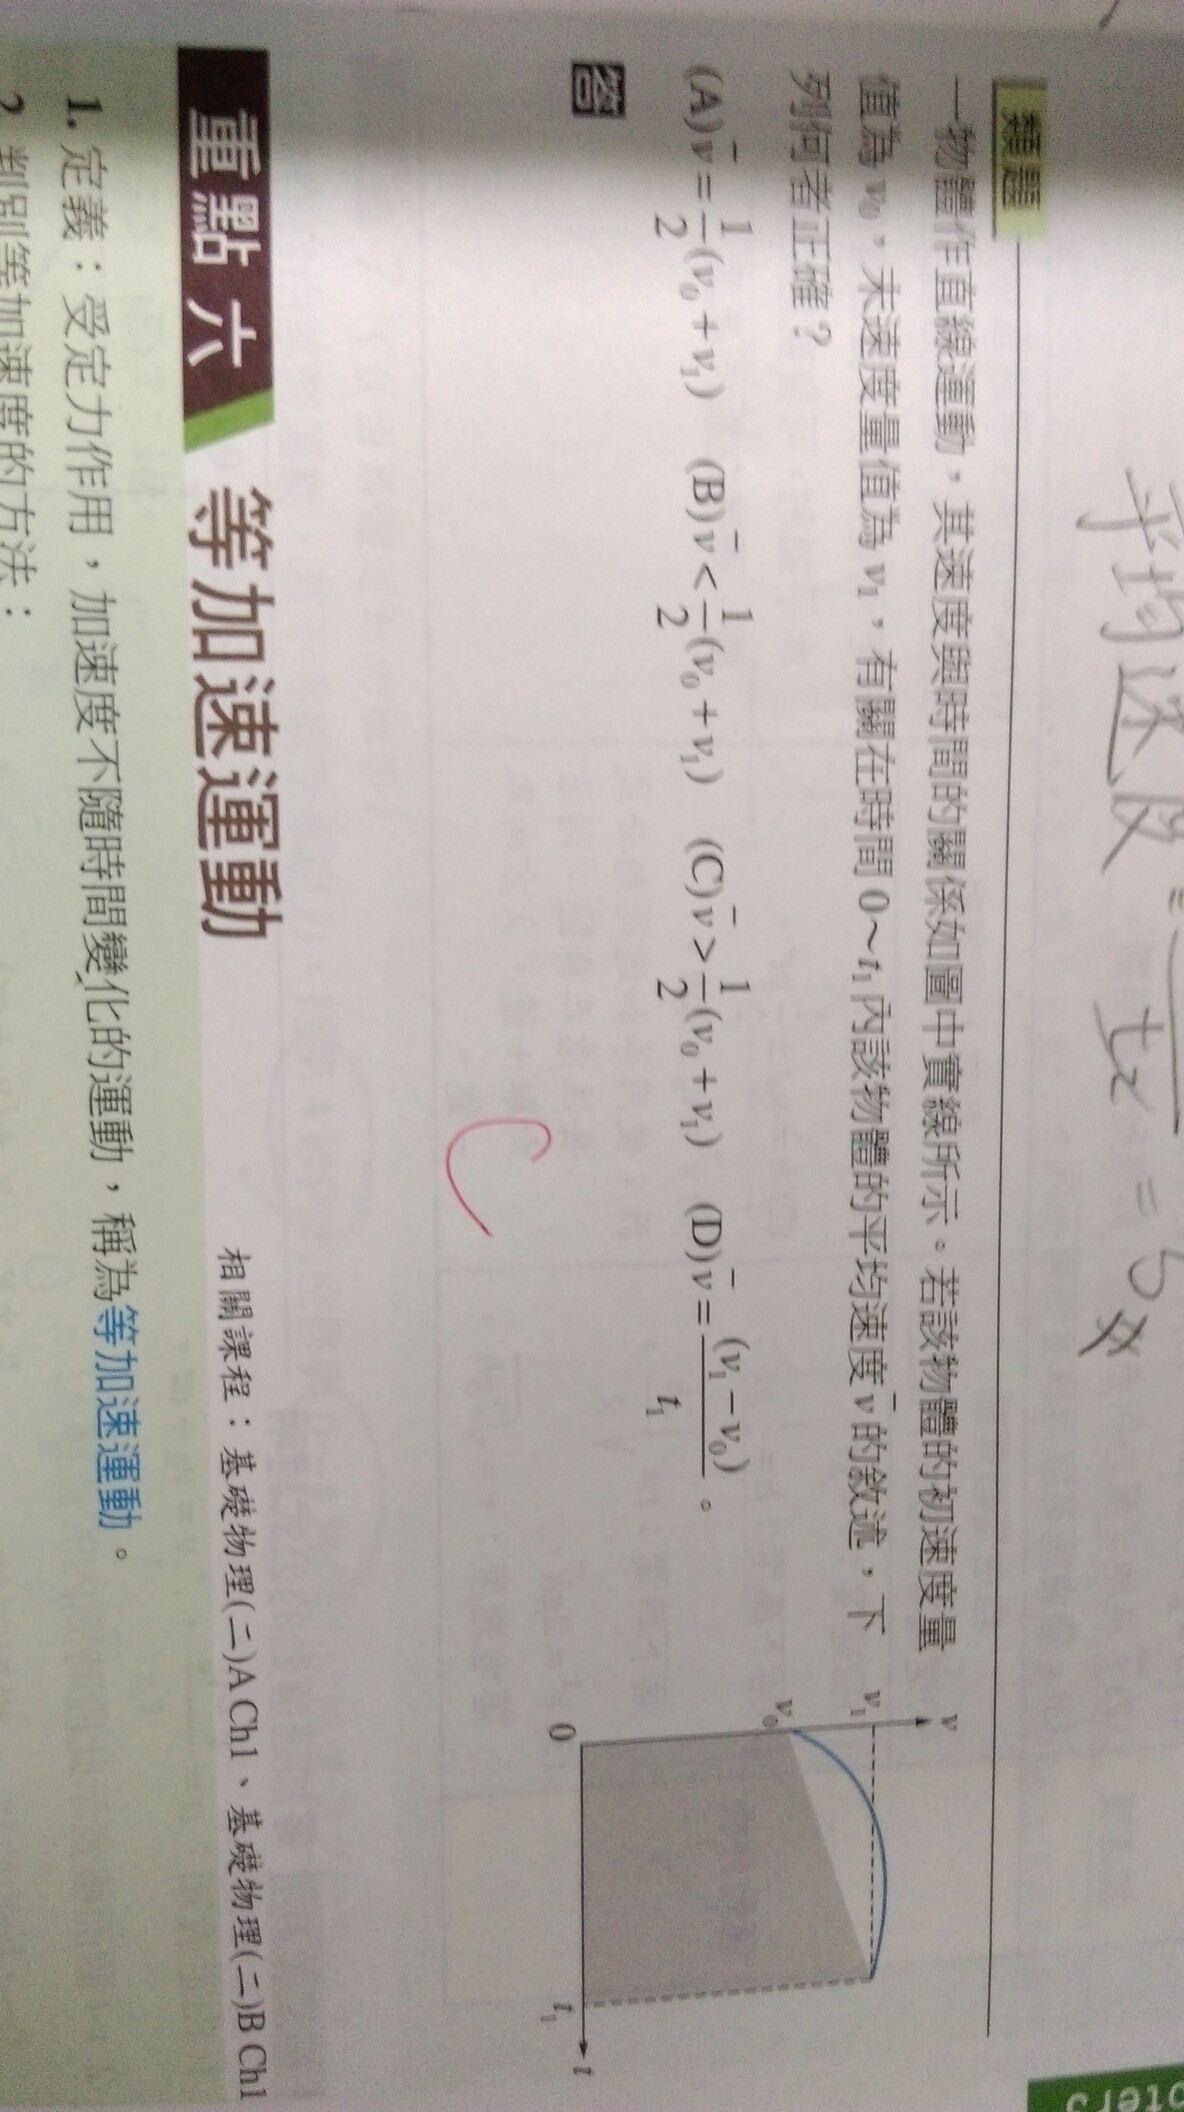 平均速度 = ── = 5
t2
類題
一物體作直線運動，其速度與時間的關係如圖中實線所示。若該物體的初速度量
值為 v₀，末速度量值為 v₁，有關在時間 0～t₁ 內該物體的平均速度 v̄ 的敘述，下
列何者正確？
(A) v̄ = 1/2 (v₀ + v₁) (B) v̄ < 1/2 (v₀ + v₁) (C) v̄ > 1/2 (v₀ + v₁) (D) v̄ = (v₁ − v₀)/t₁ 。
v
v₁
v₀
0
t₁
t
答
C
重點六 等加速運動
相關課程：基礎物理(二)A Ch1、基礎物理(二)B Ch1
1. 定義：受定力作用，加速度不隨時間變化的運動，稱為等加速運動。
2 判別等加速度的方法：